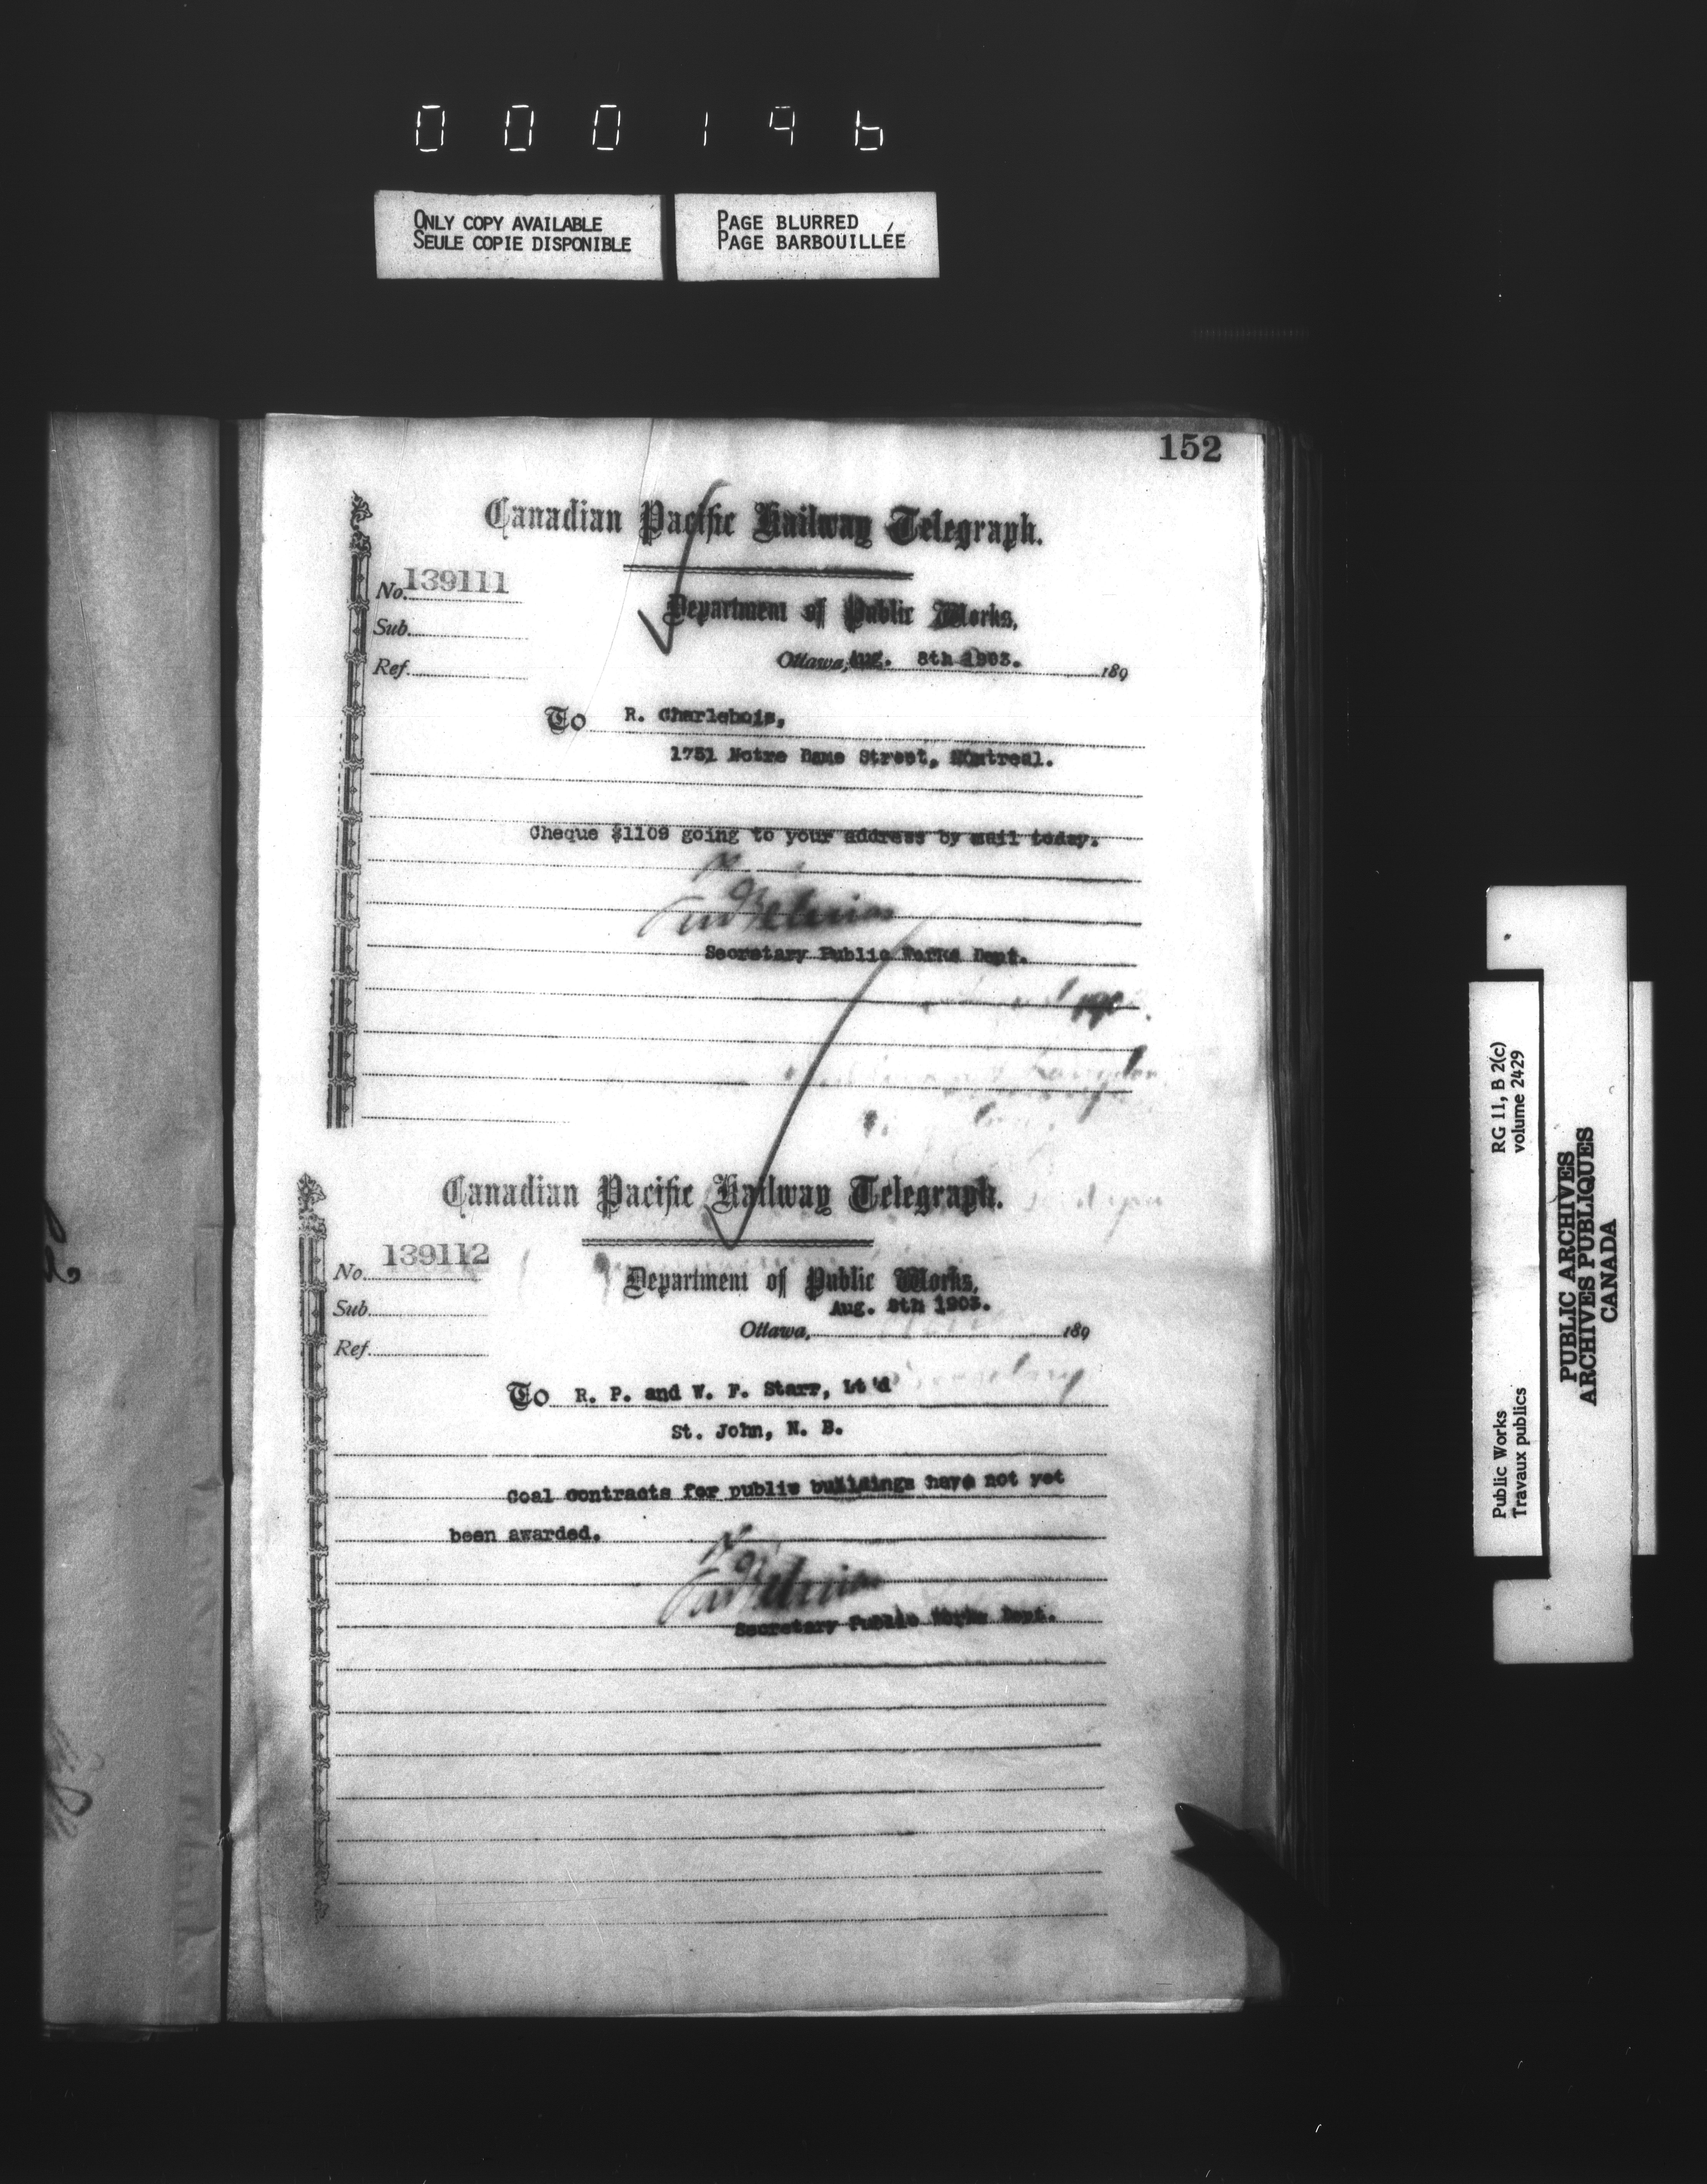 000196
ONLY COPY AVAILABLE
SEULE COPIE DISPONIBLE
PAGE BLURRED
PAGE BARBOUILLÉE
152
Canadian Pacific Railway Telegraph.
No. 139111
Department of Public Works,
Sub.
Ottawa, Aug. 8th 1903. 189
Ref.
To R. Charlebois,
1751 Notre Dame Street, Montreal.
Cheque $1109 going to your address by mail today.
Secretary Public Works Dept.
Canadian Pacific Railway Telegraph.
No. 139112
Department of Public Works,
Sub.
Aug. 8th 1903.
Ottawa, 189
Ref.
To R. P. and W. F. Starr, Lt'd
St. John, N. B.
Coal contracts for public buildings have not yet
been awarded.
Secretary Public Works Dept.
Public Works
Travaux publics
RG 11, B 2(c)
volume 2429
PUBLIC ARCHIVES
ARCHIVES PUBLIQUES
CANADA